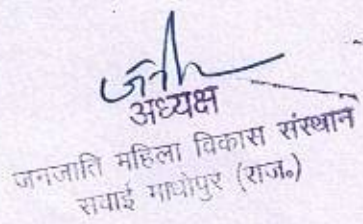 अध्यक्ष
जनजाति महिला विकास संस्थान
सवाई माधोपुर (राज॰)